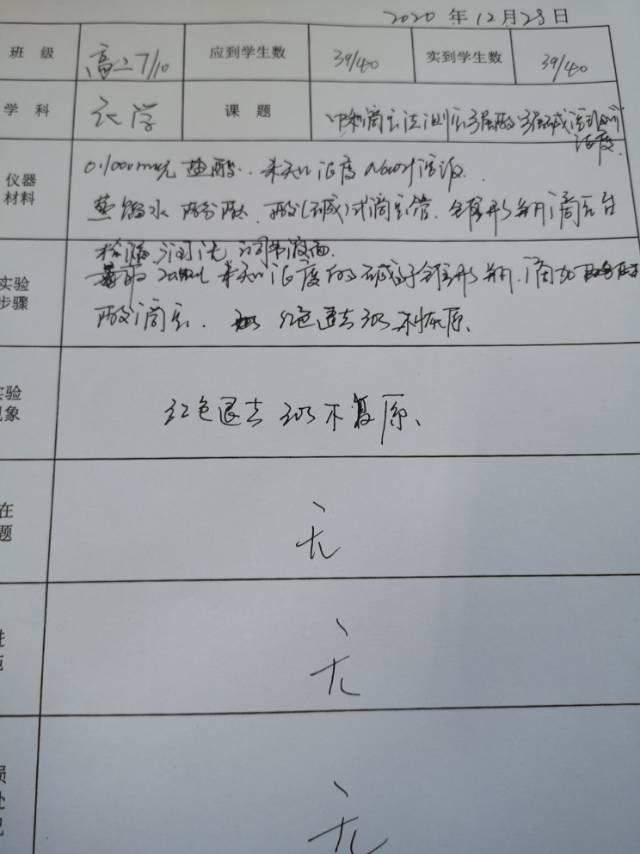 2020年12月28日
班级 高二7/10 应到学生数 39/40 实到学生数 39/40
学科 化学 课题 中和滴定法测定强酸强碱溶液的
浓度
仪器
材料
0.1000mol/L 盐酸. 未知浓度NaOH溶液.
蒸馏水 酚酞 酸(碱)式滴定管. 锥形瓶 滴定台
实验
步骤
检漏 润洗 调节液面
量取 20mL 未知浓度的碱于锥形瓶. 滴加酚酞
酸滴定. 红色退去30s不恢复原.
实验
现象
红色退去 30s不复原.
在
题
无
进
施
无
损
处
况
无